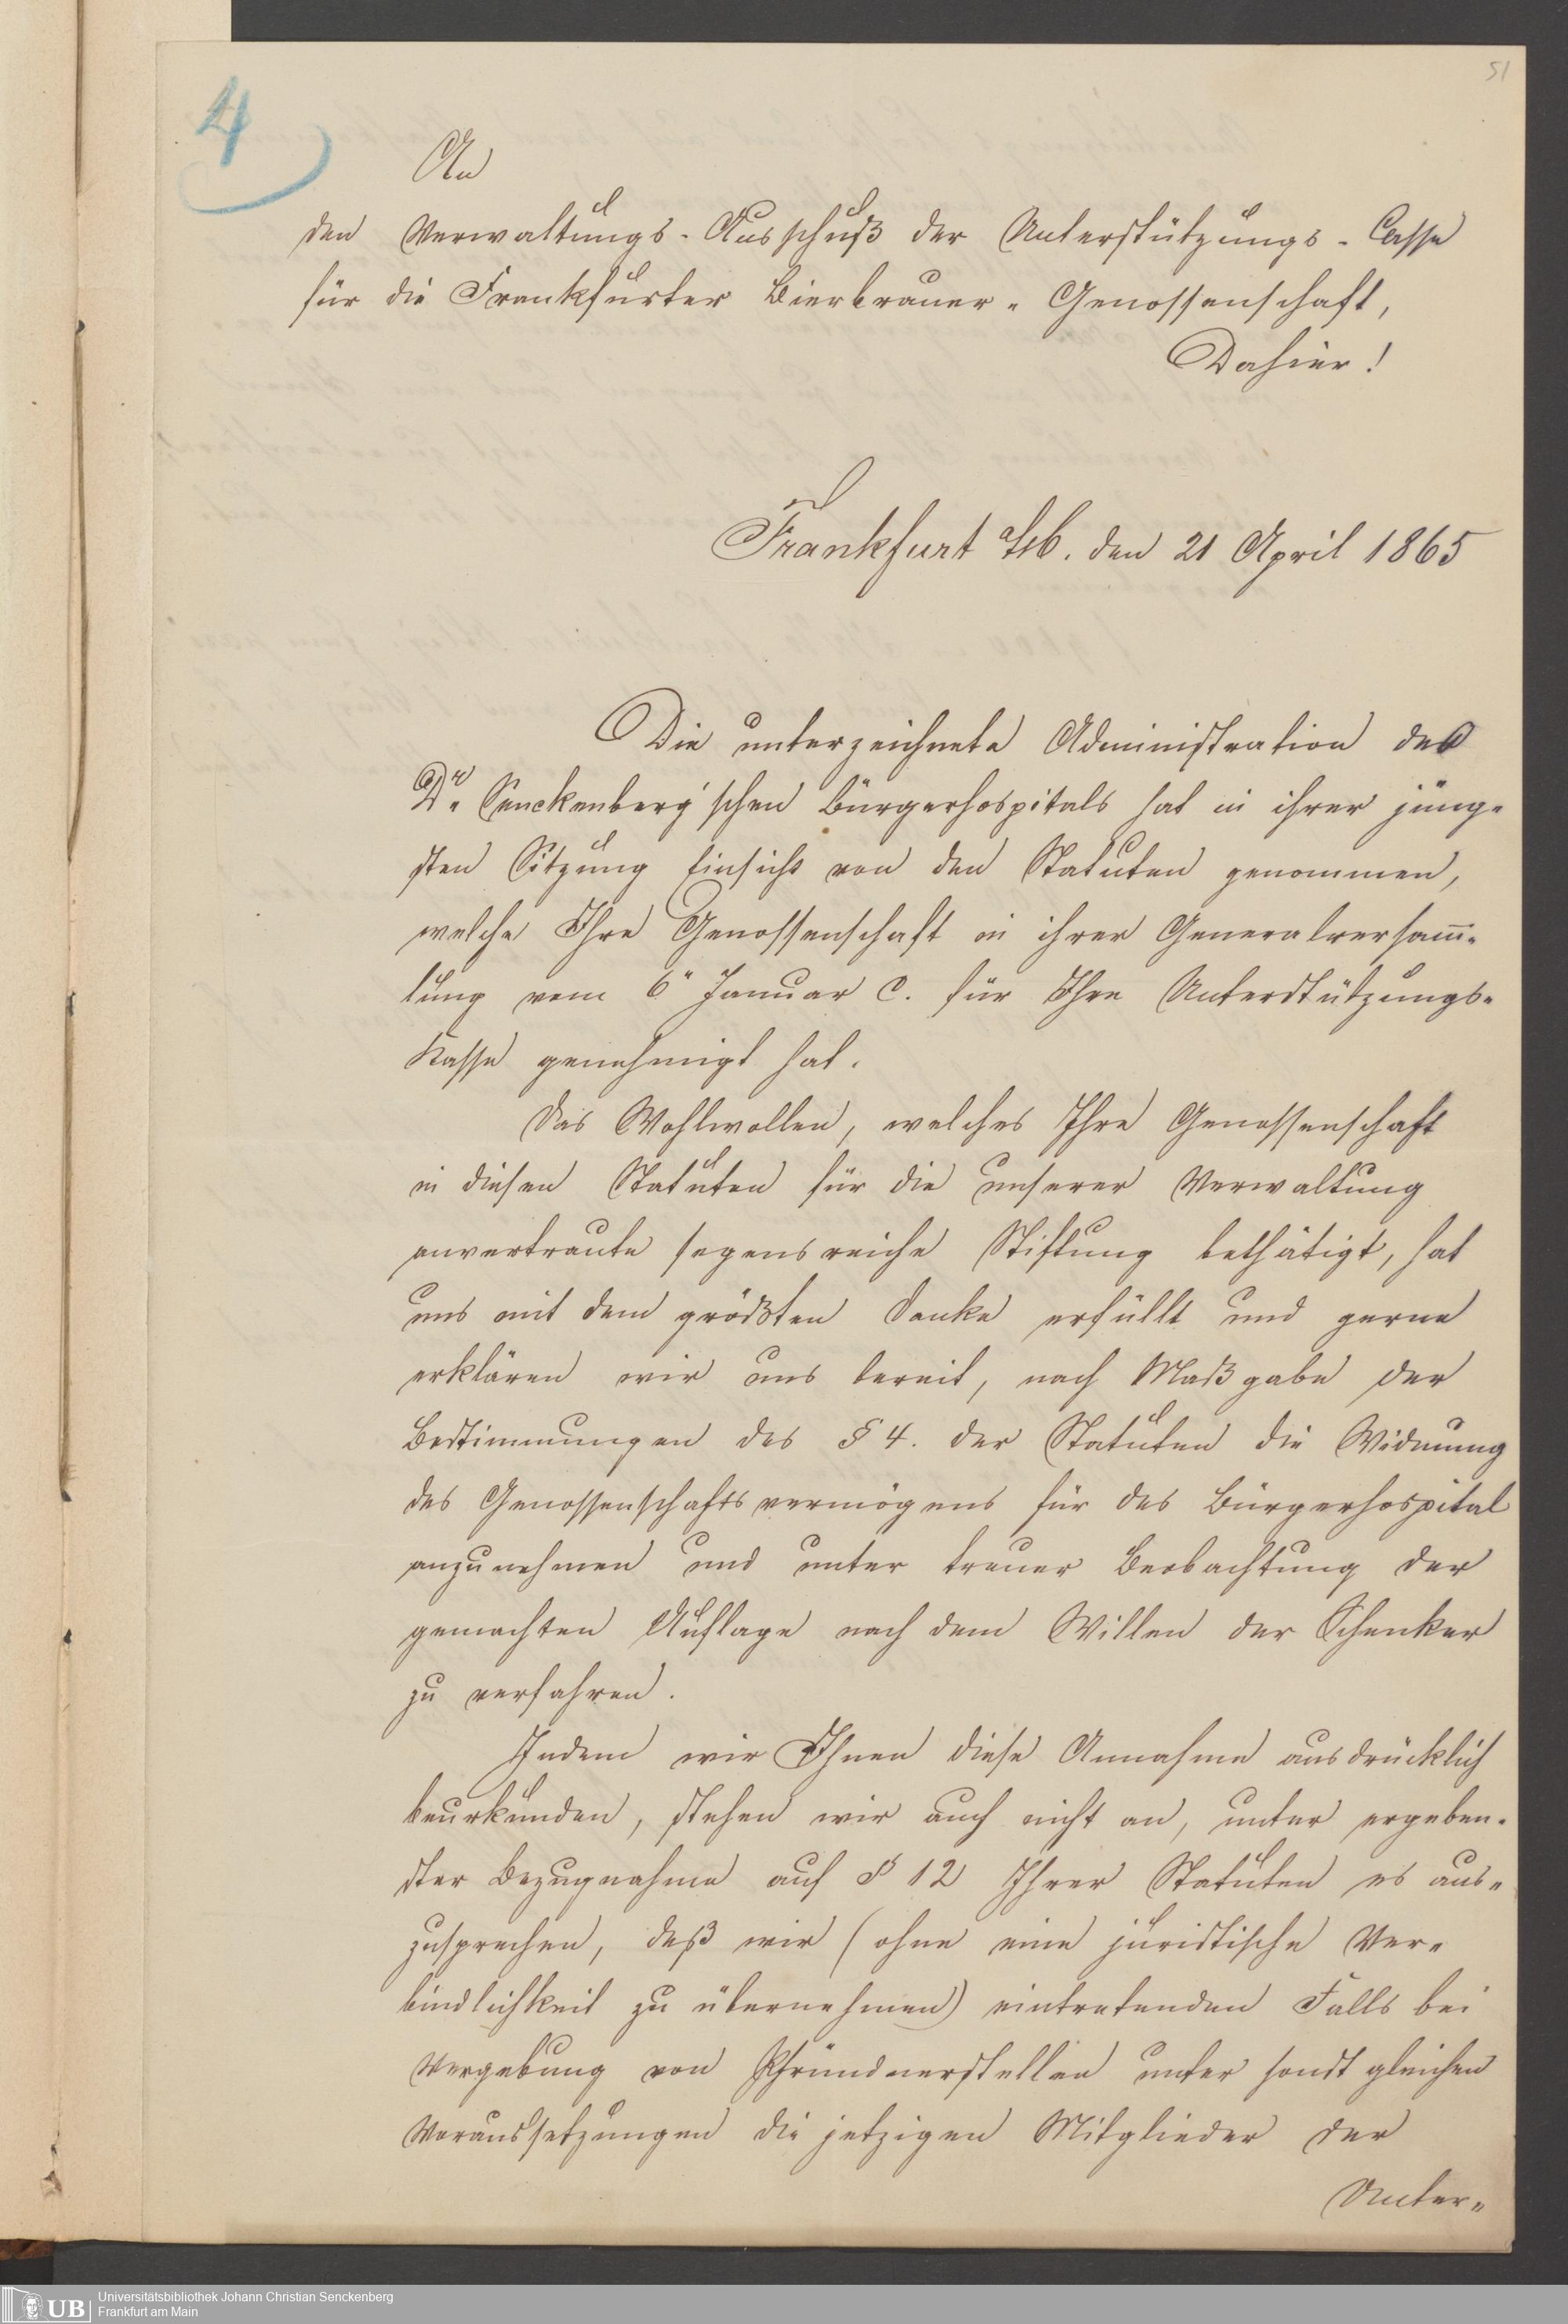 51
4
An
den Verwaltungs-Ausschuß der Unterstützungs-Casse
für die Frankfurter Bierbrauer-Genossenschaft,
Dahier!
Frankfurt a/M. den 21 April 1865
Die unterzeichnete Administration des
Dr. Senckenberg'schen Bürgerhospitals hat in ihrer jüng-
sten Sitzung Einsicht von den Statuten genommen,
welche Ihre Genossenschaft in ihrer Generalversam̅-
lung vom 6" Januar c. für Ihre Unterstützungs-
Kasse genehmigt hat.
Das Wohlwollen, welches Ihre Genossenschaft
in diesen Statuten für die unserer Verwaltung
anvertraute segensreiche Stiftung bethätigt, hat
uns mit dem größten Danke erfüllt und gerne
erklären wir uns bereit, nach Maßgabe der
Bestimmungen des § 4. der Statuten die Widmung
des Genossenschaftsvermögens für das Bürgerhospital
anzunehmen und unter treuer Beobachtung der
gemachten Auflage nach dem Willen der Schenker
zu verfahren.
Indem wir Ihnen diese Annahme ausdrücklich
beurkunden, stehen wir auch nicht an, unter ergeben-
ster Bezugnahme auf § 12 Ihrer Statuten es aus-
zusprechen, daß wir (ohne eine juristische Ver-
bindlichkeit zu übernehmen) eintretenden Falls bei
Vergebung von Pfründnerstellen unter sonst gleichen
Voraussetzungen die jetzigen Mitglieder der
Unter-
UB
Universitätsbibliothek Johann Christian Senckenberg
Frankfurt am Main